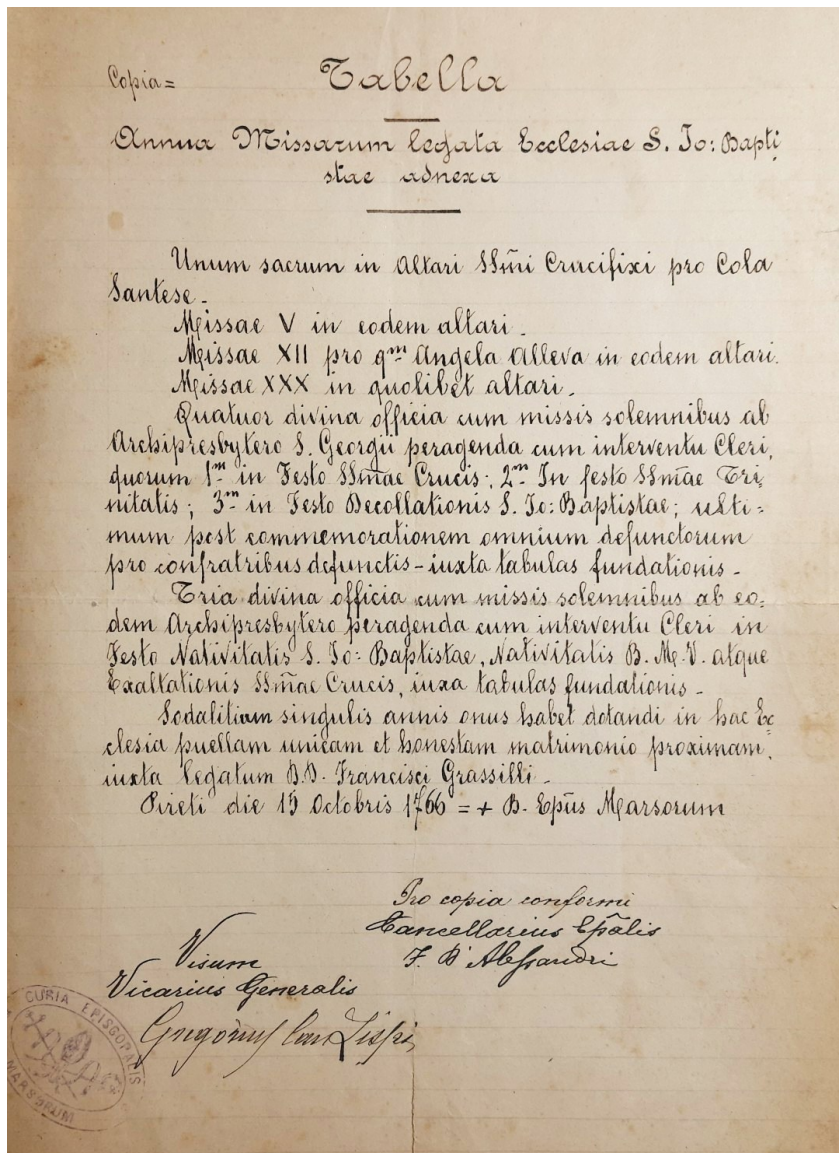 Copia =
Tabella
Annua Missarum legata Ecclesiae S. Jo: Bapti
stae adnexa
Unum sacrum in Altari SSm̃i Crucifixi pro Cola
Santese.
Missae V in eodem altari.
Missae XII pro qm Angela Alleva in eodem altari.
Missae XXX in quolibet altari.
Quatuor divina officia cum missis solemnibus ab
Archipresbytero S. Georgii peragenda cum interventu Cleri,
quorum 1m in Festo SSm̃ae Crucis; 2m In festo SSm̃ae Tri=
nitatis; 3m in Festo Decollationis S. Jo: Baptistae; ulti=
mum post commemorationem omnium defunctorum
pro confratribus defunctis - iuxta tabulas fundationis -
Tria divina officia cum missis solemnibus ab eo=
dem Archipresbytero peragenda cum interventu Cleri in
Festo Nativitatis S. Jo: Baptistae, Nativitatis B. M. V. atque
Exaltationis SSm̃ae Crucis, iuxa tabulas fundationis -
Sodalitium singulis annis onus habet dotandi in hac Ec=
clesia puellam unicam et honestam matrimonio proximam,
iuxta legatum D.D. Francisci Grassilli -
Pireti die 15 Octobris 1766 = + B. Epũs Marsorum
Pro copia conformi
Cancellarius Ep̃alis
F. D'Alessandri
Visum
Vicarius Generalis
CURIA EPISCOPALIS
MARSORUM